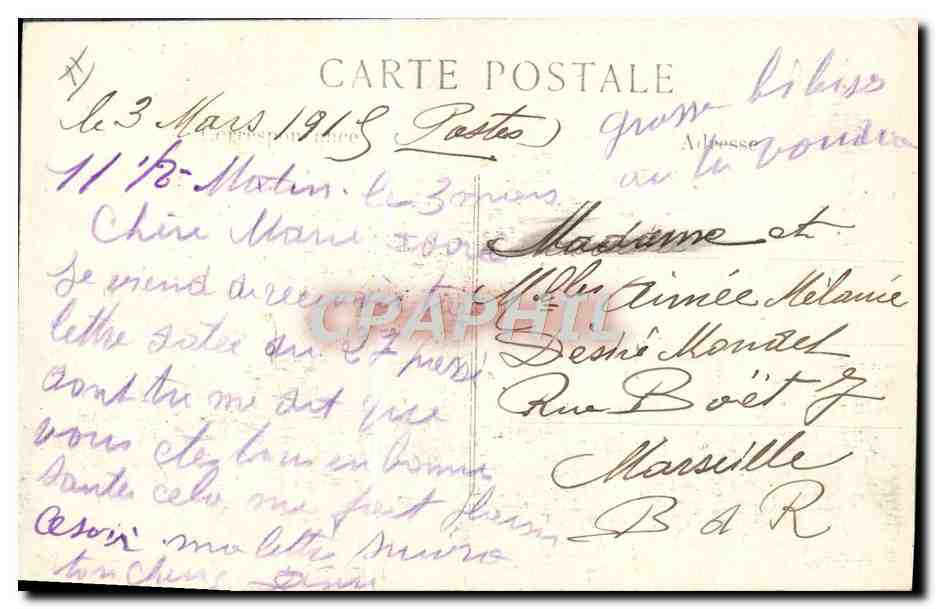 CARTE POSTALE
le 3 Mars 1915 (Postes)
Correspondance
Adresse
grosse bibise
ou tu voudra
11 1/2 Matin le 3 mars
Chère Marie adoré
Je viend de recevoir ta
lettre datée du 27
dont tu me dit que
vous etez tous en bonne
santée cela me fait plaisir
ce soir ma lettre suivra
ton cheri
Madame et
Mlles Aimée Mélanie
Desiré Moudet
Rue Boët 7
Marseille
B d R
CPAPHIL